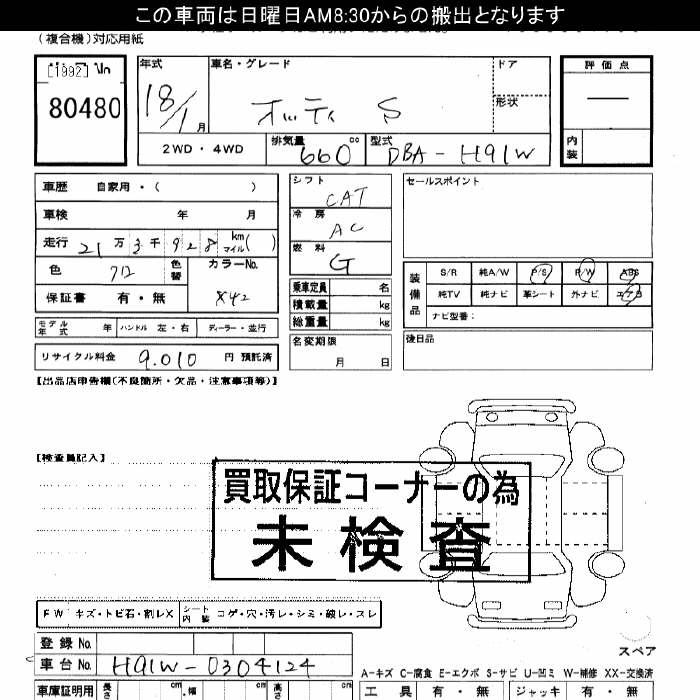 この車両は日曜日AM8:30からの搬出となります
(複合機)対応用紙
[1992]
80480
年式 車名・グレード ドア 評価点
18/1月 オッティ S 形状 —
2WD・4WD 排気量 660 cc 型式 DBA-H91W 内装
車歴 自家用・( )
車検 年 月
走行 21万3千928 km マイル( )
色 色替 カラーNo.
保証書 有・無 X42
モデル年式 年 ハンドル 左・右 ディーラー・並行
リサイクル料金 9,010 円 預託済
シフト CAT
冷房 AC
燃料 G
乗車定員 名
積載量 kg
総重量 kg
名変期限 月 日
セールスポイント
装備品 S/R 純A/W P/S P/W ABS
純TV 純ナビ 革シート 外ナビ エアB
ナビ型番:
後日品
【出品店申告欄(不良箇所・欠品・注意事項等)】
【検査員記入】
買取保証コーナーの為
未検査
FW キズ・トビ石・割レX シート内装 コゲ・穴・汚レ・シミ・破レ・スレ
登録No.
車台No. H91W-0304124
スペア
A-キズ C-腐食 E-エクボ S-サビ U-凹ミ W-補修 XX-交換済
車庫証明用 長さ cm 幅 cm 高さ cm
工具 有・無 ジャッキ 有・無